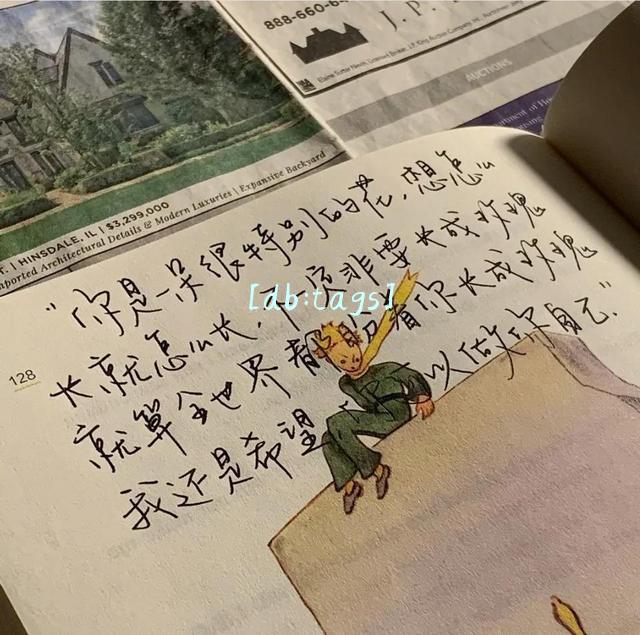 888-660-6
J. P.
AUCTIONS
HINSDALE, IL | $3,299,000
Architectural Details & Modern Luxuries | Expansive Backyard
“你是一朵很特别的花,想怎么
长就怎么长,不一定非要长成玫瑰
[db:tags]
就算全世界都 着你长成玫瑰
128
我还是希望 以做你自己”